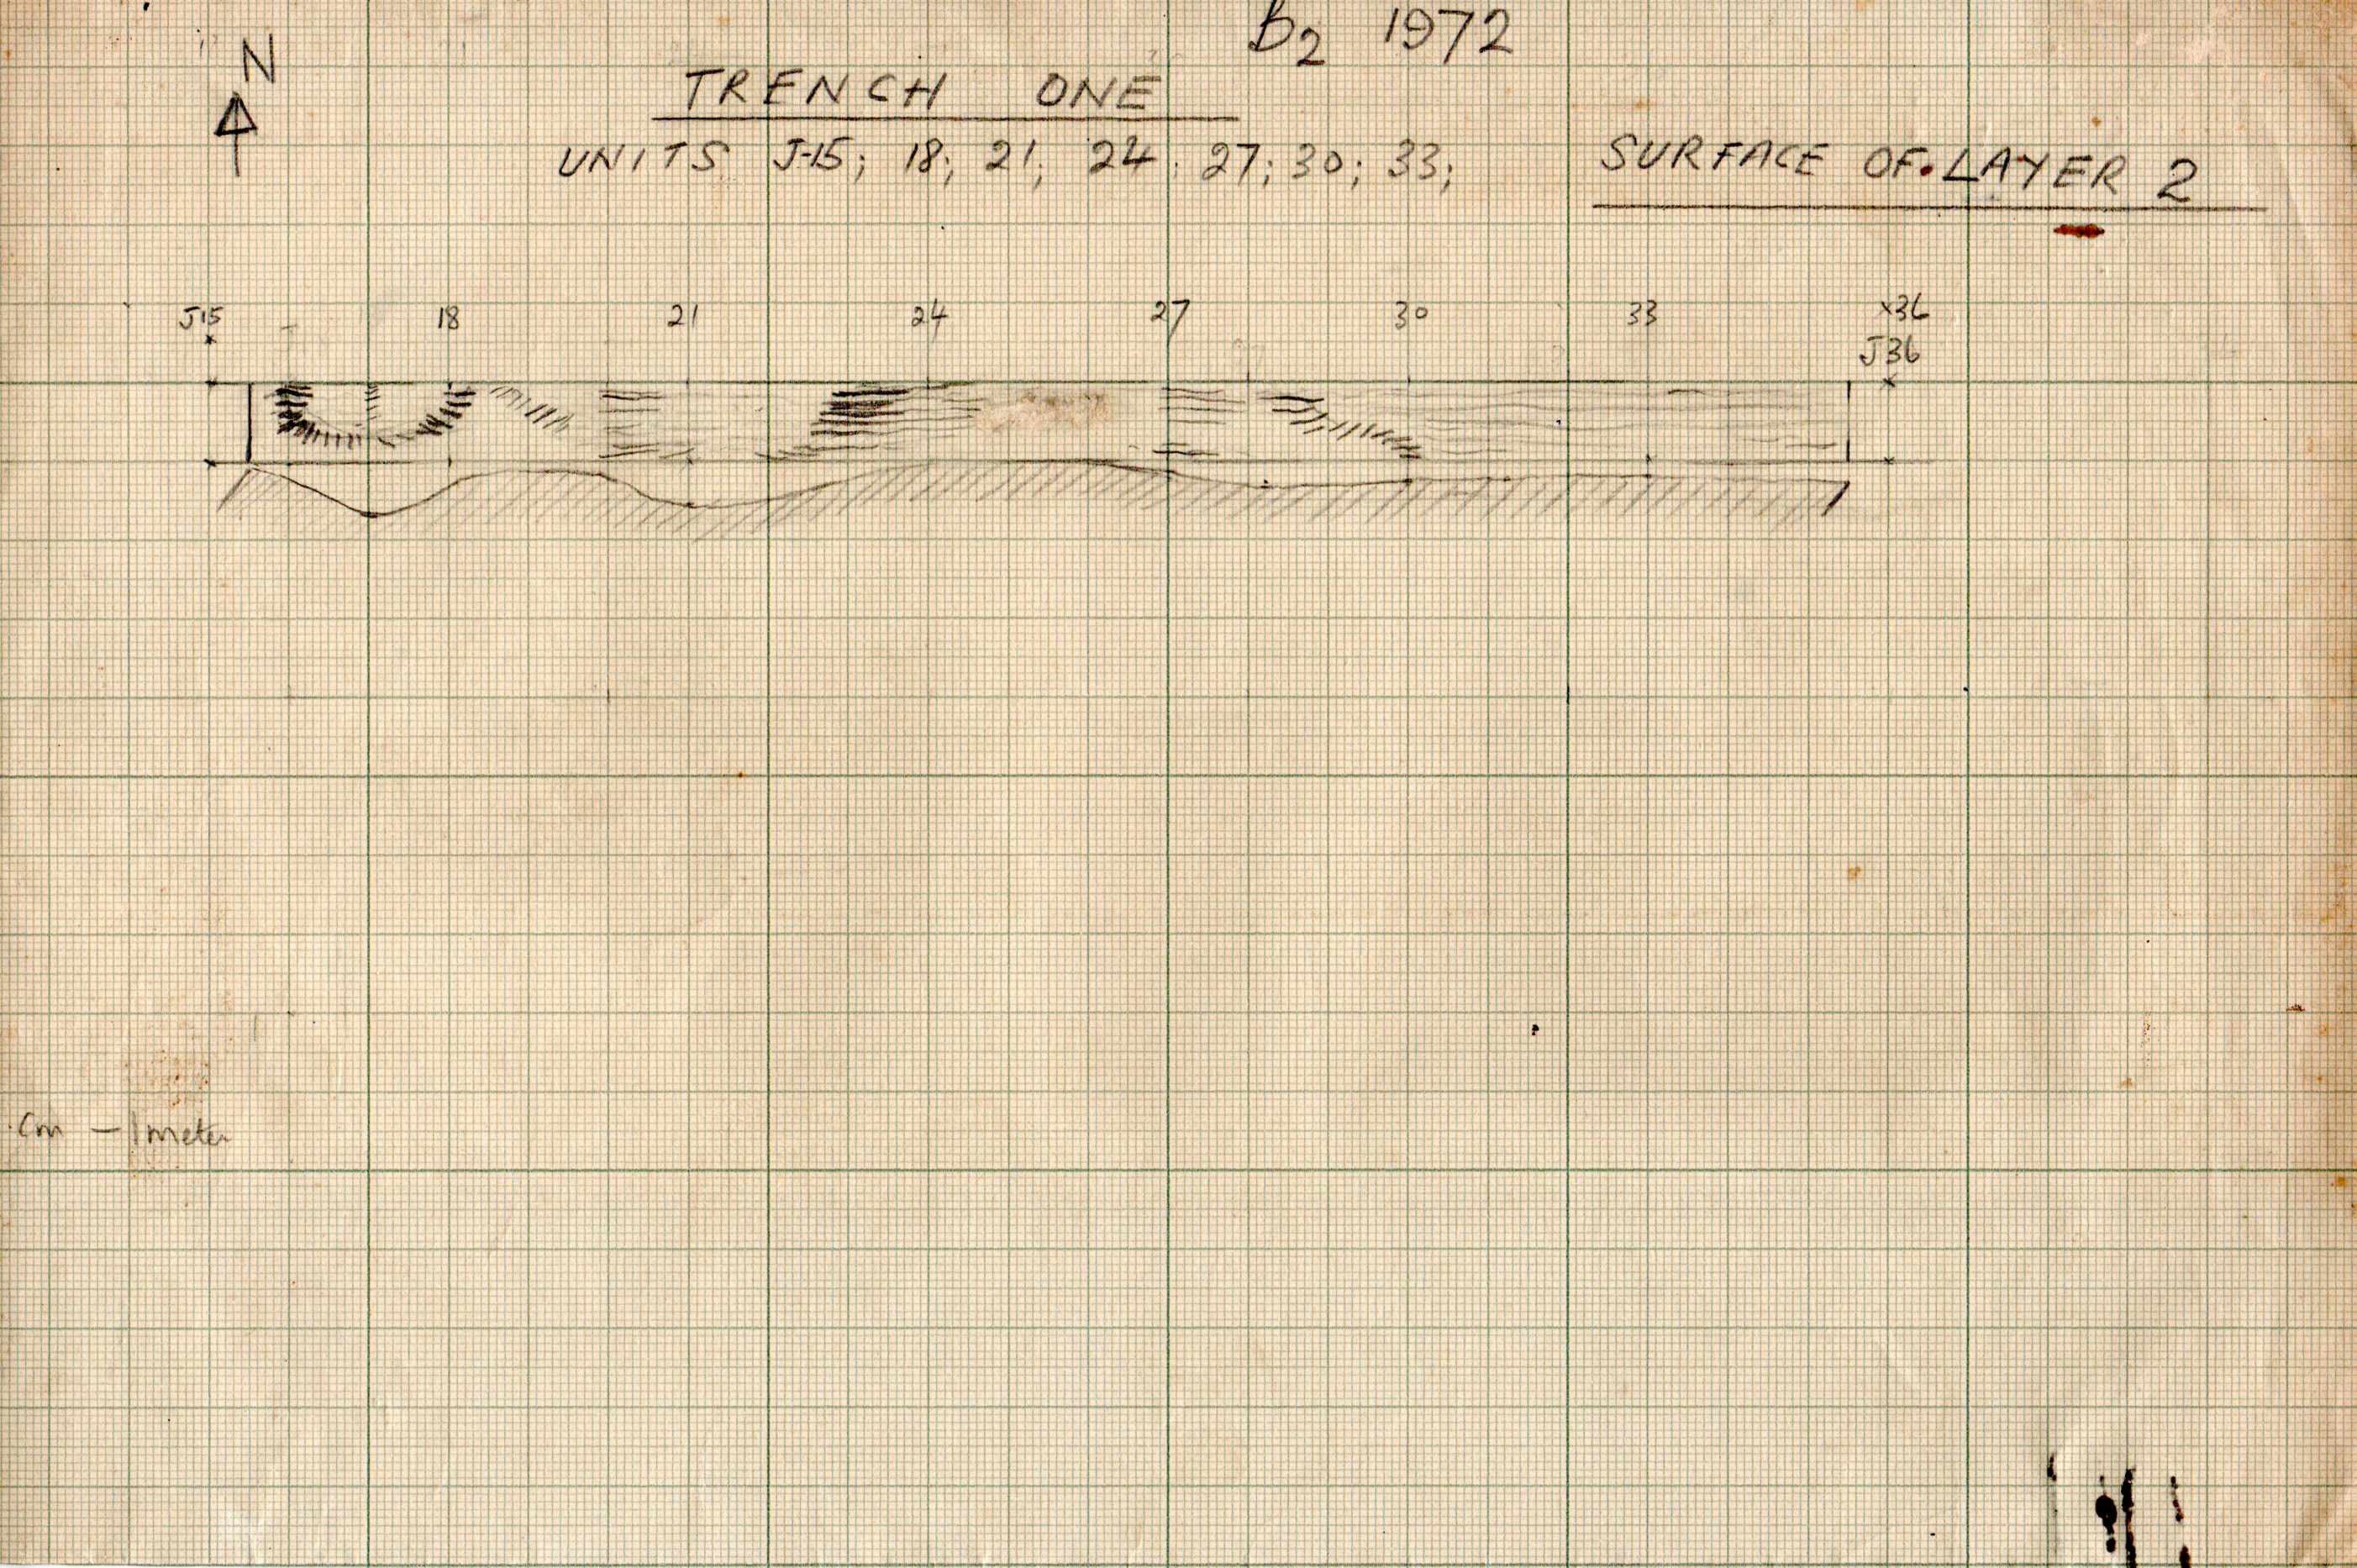 B2 1972
N
TRENCH ONE
UNITS J-15; 18; 21; 24; 27; 30; 33;
SURFACE OF LAYER 2
J15 18 21 24 27 30 33 x36
J36
cm – 1 meter